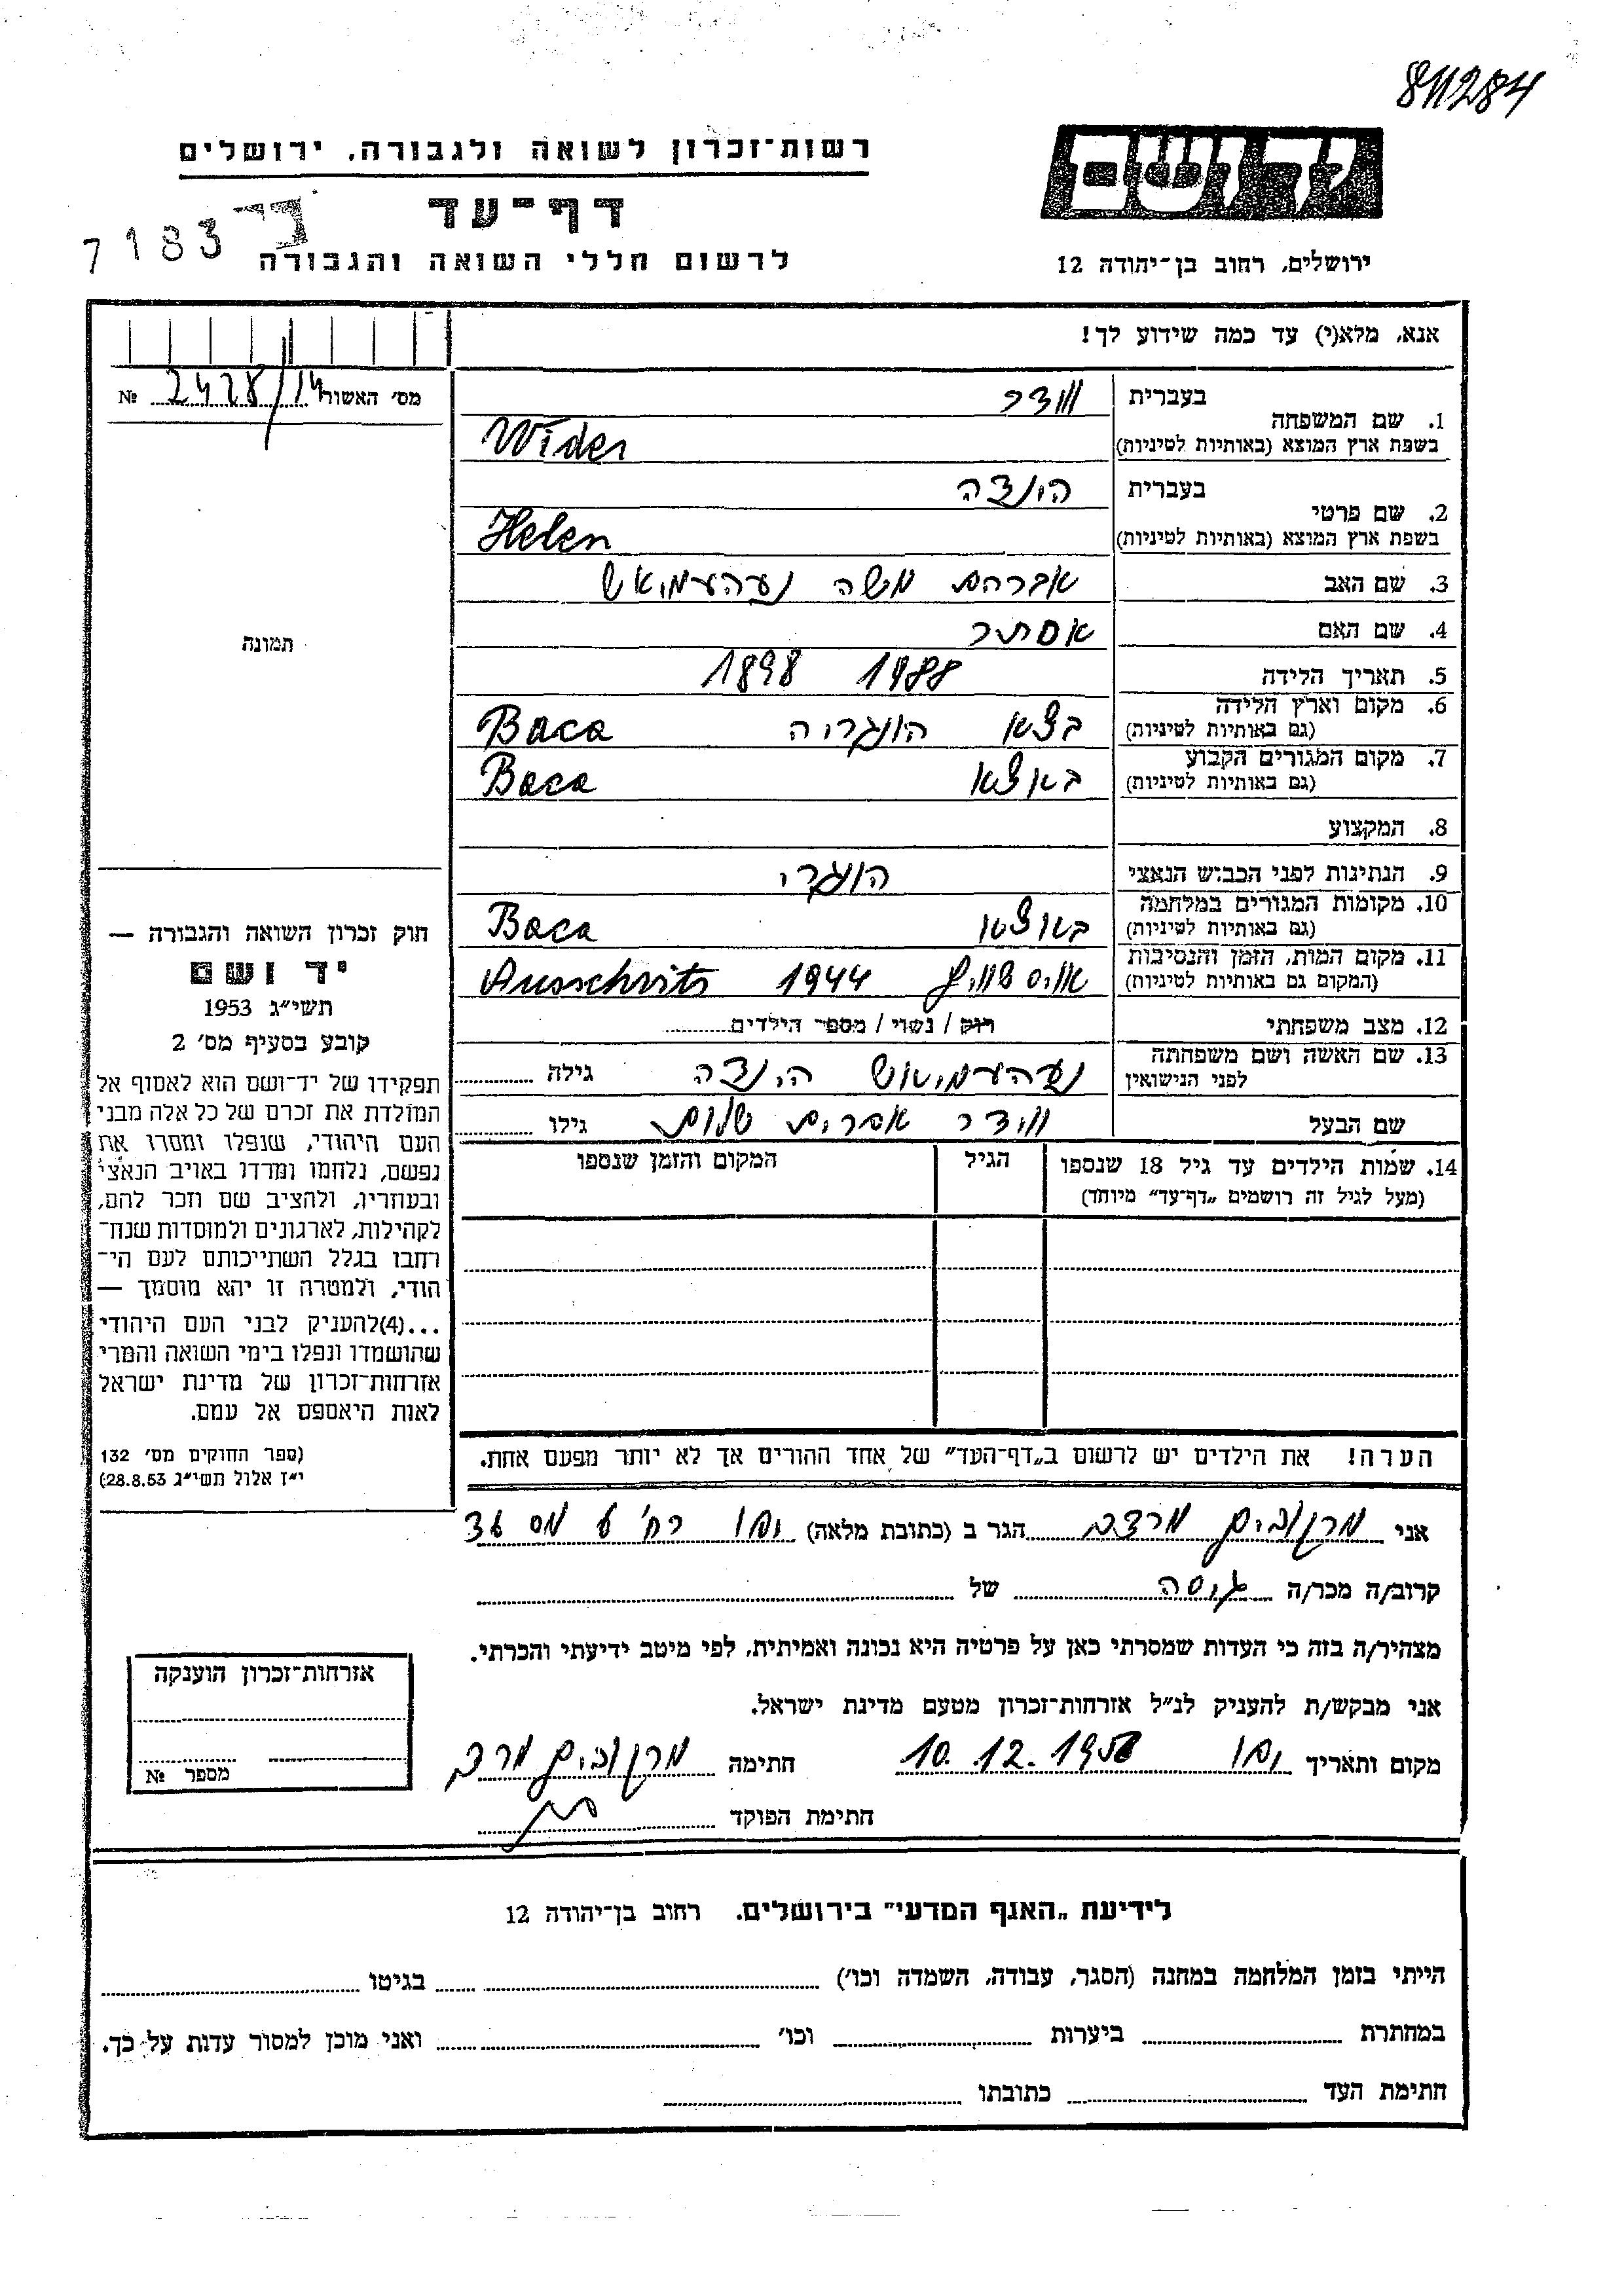 811284
רשות־זכרון לשואה ולגבורה, ירושלים
יד ושם
דף־עד
7183
לרשום חללי השואה והגבורה
ירושלים, רחוב בן־יהודה 12
אנא, מלא(י) עד כמה שידוע לך!
מס׳ האשור 2428/14 №
1. שם המשפחה
בעברית ווידר
בשפת ארץ המוצא (באותיות לטיניות) Wider
2. שם פרטי
בעברית הינצה
בשפת ארץ המוצא (באותיות לטיניות) Helen
3. שם האב אברהם משה נעהעמיאש
4. שם האם אסתר
תמונה
5. תאריך הלידה 1888 1898
6. מקום וארץ הלידה
(גם באותיות לטיניות) בצא הונגריה Baca
7. מקום המגורים הקבוע
(גם באותיות לטיניות) באצא Baca
8. המקצוע
9. הנתינות לפני הכבוש הנאצי הונגרי
10. מקומות המגורים במלחמה
(גם באותיות לטיניות) באצא Baca
11. מקום המות, הזמן והנסיבות
(המקום גם באותיות לטיניות) אויסשוויץ 1944 Ausschvits
12. מצב משפחתי רוק / נשוי / מספר הילדים
13. שם האשה ושם משפחתה
לפני הנישואין נעהעמיאש הינצה גילה
שם הבעל ווידר אפרים שלום גילו
14. שמות הילדים עד גיל 18 שנספו הגיל המקום והזמן שנספו
(מעל לגיל זה רושמים „דף־עד״ מיוחד)
חוק זכרון השואה והגבורה —
יד ושם
תשי״ג 1953
קובע בסעיף מס׳ 2
תפקידו של יד־ושם הוא לאסוף אל
המולדת את זכרם של כל אלה מבני
העם היהודי, שנפלו ומסרו את
נפשם, נלחמו ומרדו באויב הנאצי
ובעוזריו, ולהציב שם וזכר להם,
לקהילות, לארגונים ולמוסדות שנח־
רבו בגלל השתייכותם לעם הי־
הודי, ולמטרה זו יהא מוסמך —
...(4)להעניק לבני העם היהודי
שהושמדו ונפלו בימי השואה והמרי
אזרחות־זכרון של מדינת ישראל
לאות היאספם אל עמם.
(ספר החוקים מס׳ 132
י״ז אלול תשי״ג 28.8.53)
הערה! את הילדים יש לרשום ב„דף־העד״ של אחד ההורים אך לא יותר מפעם אחת.
אני מרקוביץ מרדכי הגר ב (כתובת מלאה) יפו רח׳ 6 מס 36
קרוב/ה מכר/ה גיסה של
מצהיר/ה בזה כי העדות שמסרתי כאן על פרטיה היא נכונה ואמיתית, לפי מיטב ידיעתי והכרתי.
אני מבקש/ת להעניק לנ״ל אזרחות־זכרון מטעם מדינת ישראל.
מקום ותאריך יפו 10.12.1956 חתימה מרקוביץ מרדכי
חתימת הפוקד
אזרחות־זכרון הוענקה
מספר №
לידיעת „האגף המדעי״ בירושלים, רחוב בן־יהודה 12
הייתי בזמן המלחמה במחנה (הסגר, עבודה, השמדה וכו׳) בגיטו
במחתרת ביערות וכו׳ ואני מוכן למסור עדות על כך.
חתימת העד כתובתו